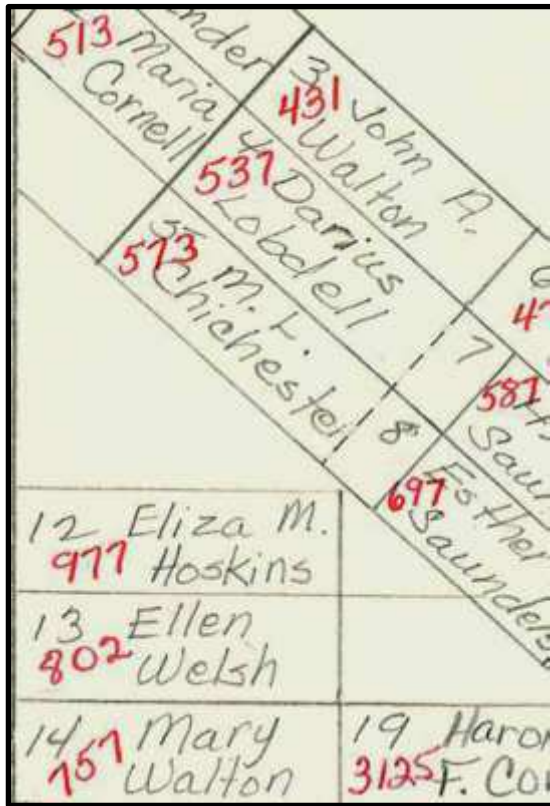 nder
513 Maria
Cornell
3 John A.
431 Walton
4 Darius
537 Lobdell
5 M. L.
573 Chichester
6
47
7
587 H.
Saun
8
697 Esther
Saunders
12 Eliza M.
977 Hoskins
13 Ellen
802 Welsh
14 Mary
757 Walton
19 Haron
3125 F. Cor